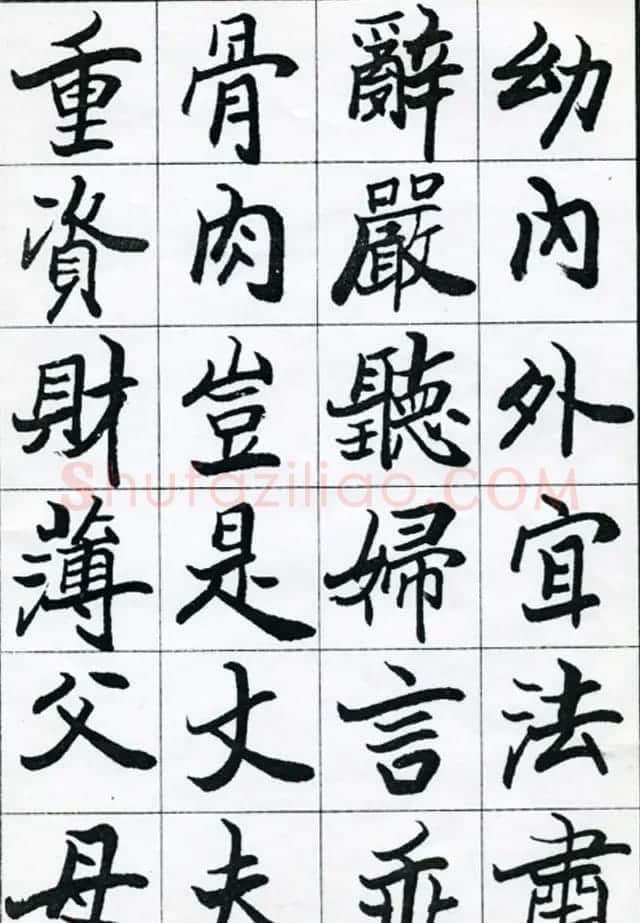 幼內外宜法肅
辭嚴聽婦言乖
骨肉豈是丈夫
重資財薄父母
Shufaziliao.COM